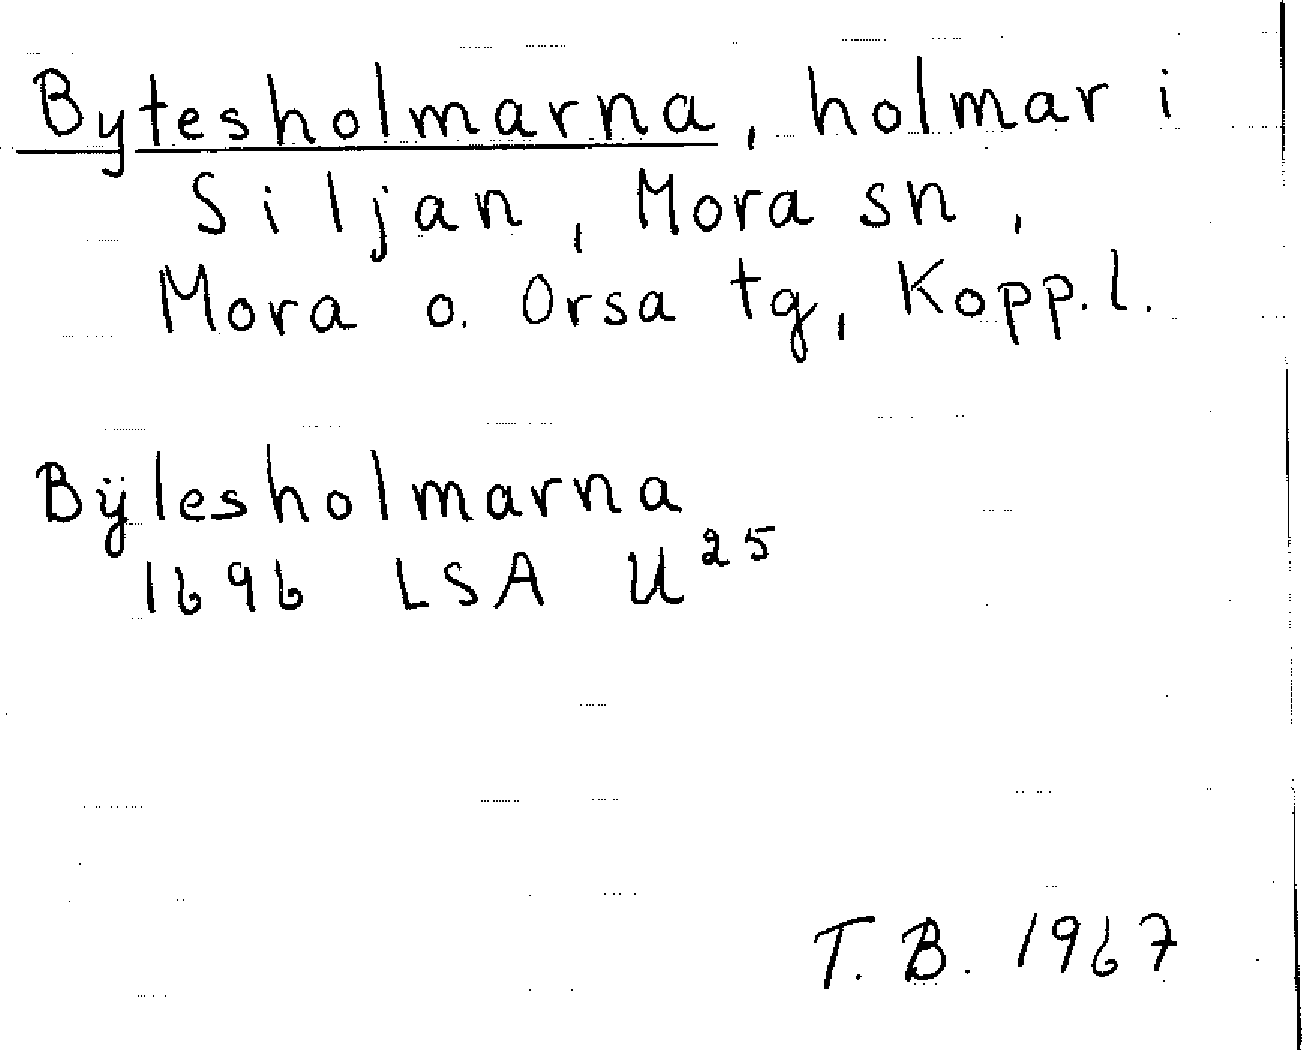 Bytesholmarna, holmar i
Siljan, Mora sn,
Mora o. Orsa tg, Kopp.l.
Bÿlesholmarna
1696 LSA U²⁵
T. B. 1967